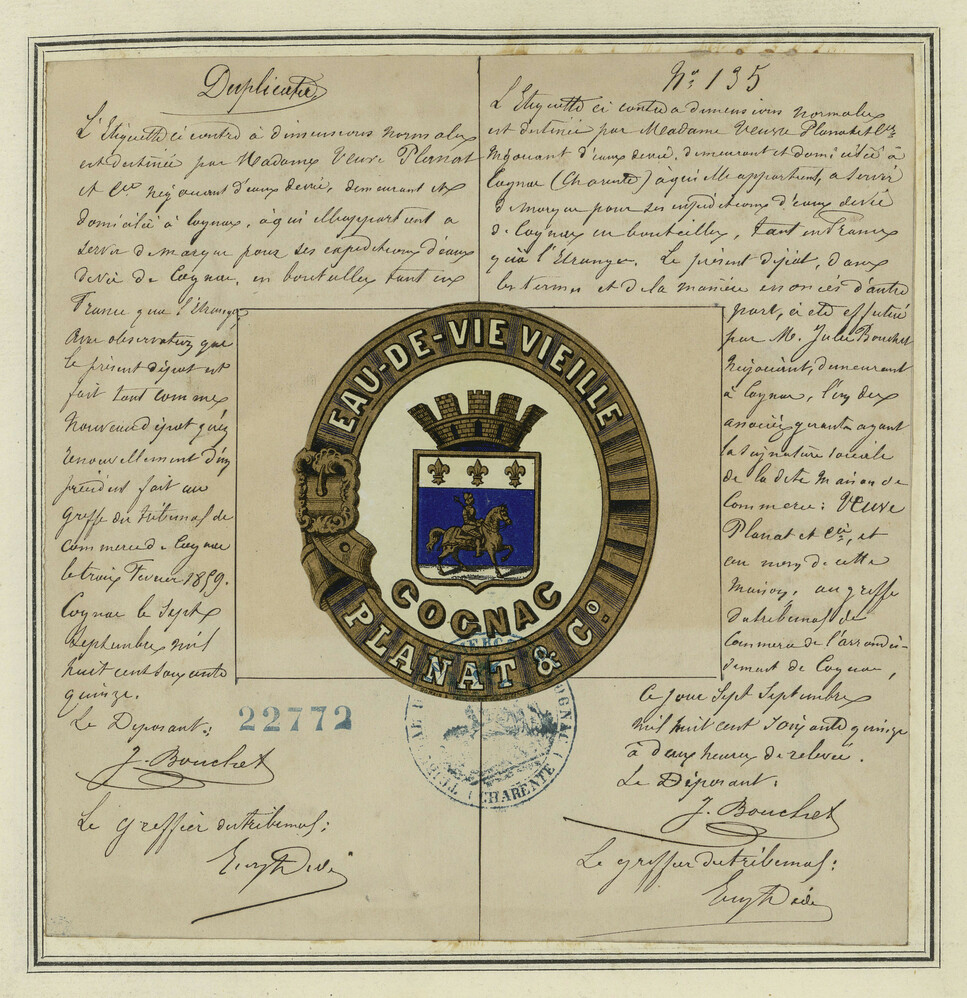 Duplicata
L'Etiquette ci contre à dimensions normales
est destinée par Madame Veuve Planat
et Cie négociant d'eaux devie, demeurant et
domiciliée à Cognac, à qui elle appartient a
servir de marque pour ses expéditions d'eaux
devie de Cognac, en bouteilles tant en
France que l'étranger
avec observation que
le présent dépôt est
fait tant comme
nouveau dépôt qu'en
renouvellement d'un
précédent fait au
greffe du tribunal de
commerce de Cognac
le trois Fevrier 1859.
Cognac le Sept
Septembre mil
huit cent soixante
quinze.
Le Déposant:
J. Bouchet
Le greffier du tribunal:
N° 135
L'Etiquette ci contre a dimensions normales
est destinée par Meadame Veuve Planat et Cie
négociant d'eaux devie, demeurant et domiciliée à
Cognac (Charente) a qui elle appartient, a servir
de marque pour ses expéditions d'eaux devie
de Cognac en bouteilles, tant en France
qu'à l'Etranger. Le présent dépôt, dans
les termes et de la manière enoncés d'autre
part, a été effectué
par M. Jules Bouchet
négociant, demeurant
à Cognac, l'un des
associés gerants ayant
la signature sociale
de la dite Maison de
Commerce: Veuve
Planat et Cie, et
au nom de cette
Maison, au greffe
du tribunal de
Commerce de l'arrondis-
sement de Cognac,
Ce jour Sept Septembre
mil huit cent soixante quinze
à deux heures de relevée.
Le Déposant:
J. Bouchet
Le greffier du tribunal:
EAU-DE-VIE VIEILLE
COGNAC
PLANAT & Co.
22772
COGNAC
(CHARENTE)